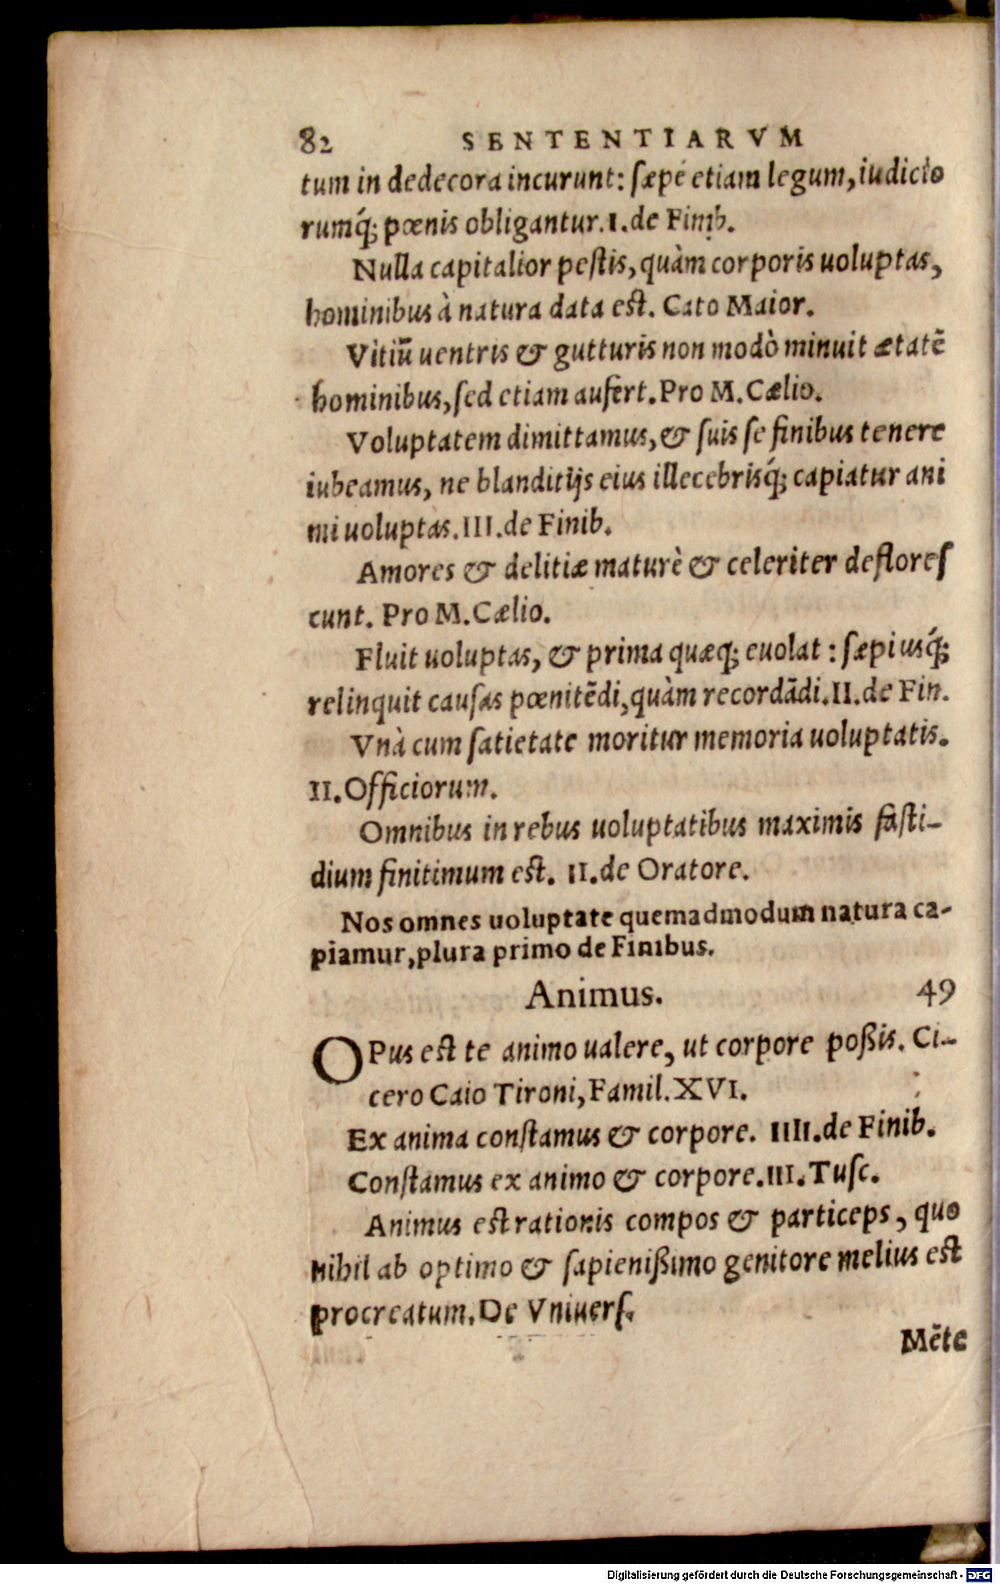 82 SENTENTIARVM
tum in dedecora incurunt: sæpe etiam legum, iudicio
rumq́; pœnis obligantur. I. de Finib.
Nulla capitalior pestis, quàm corporis uoluptas,
hominibus à natura data est. Cato Maior.
Vitiū uentris & gutturis non modò minuit ætatē
hominibus, sed etiam aufert. Pro M. Cælio.
Voluptatem dimittamus, & suis se finibus tenere
iubeamus, ne blanditijs eius illecebrisq́; capiatur ani
mi uoluptas. III. de Finib.
Amores & delitiæ maturè & celeriter deflores
cunt. Pro M. Cælio.
Fluit uoluptas, & prima quæq; euolat: sæpiusq́;
relinquit causas pœnitēdi, quàm recordādi. II. de Fin.
Vnà cum satietate moritur memoria uoluptatis.
II. Officiorum.
Omnibus in rebus uoluptatibus maximis fasti-
dium finitimum est. II. de Oratore.
Nos omnes uoluptate quemadmodum natura ca-
piamur, plura primo de Finibus.
Animus. 49
OPus est te animo ualere, ut corpore poßis. Ci-
cero Caio Tironi, Famil. XVI.
Ex anima constamus & corpore. IIII. de Finib.
Constamus ex animo & corpore. III. Tusc.
Animus est rationis compos & particeps, quo
nihil ab optimo & sapienißimo genitore melius est
procreatum. De Vniuers.
Mēte
Digitalisierung gefördert durch die Deutsche Forschungsgemeinschaft - DFG